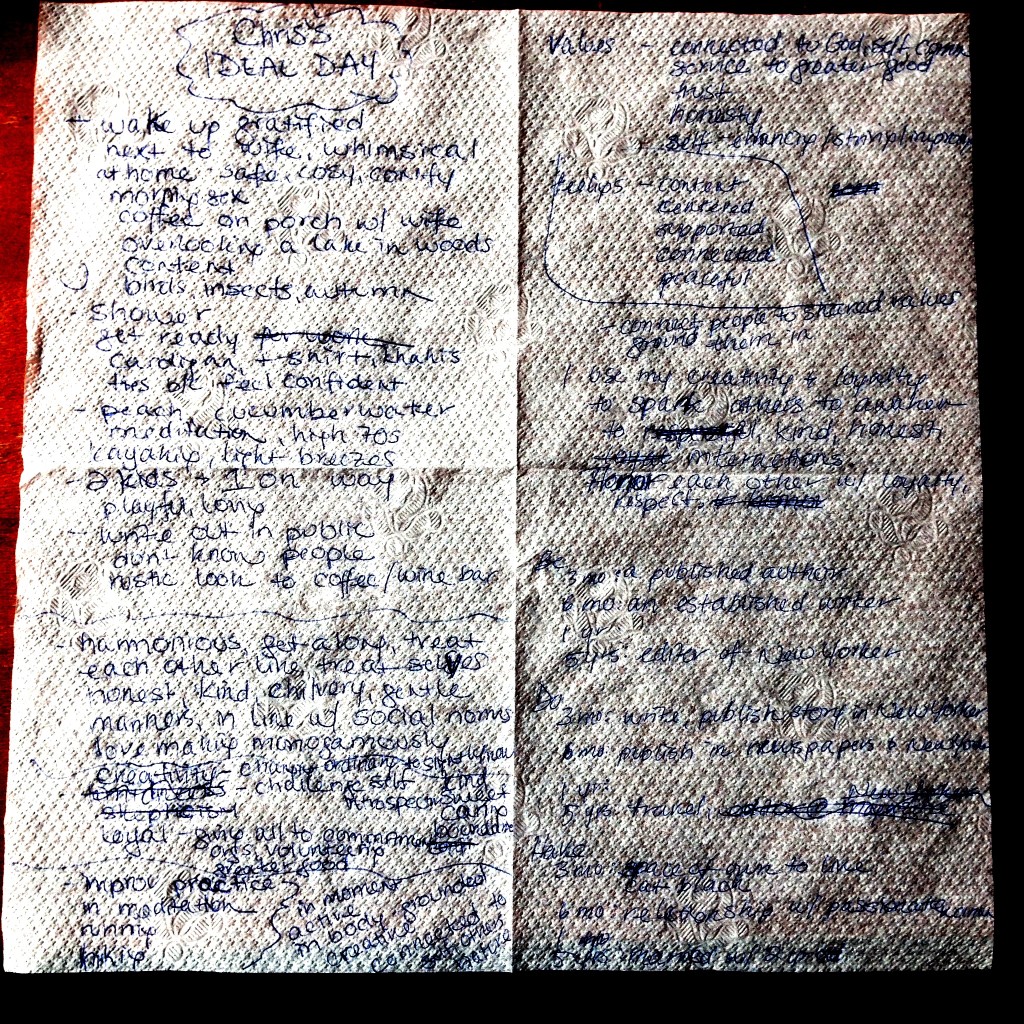 Chris's
IDEAL DAY
- wake up gratified
next to wife, whimsical
at home - safe, cozy, comfy
morning sex
coffee on porch w/ wife
overlooking a lake in woods
content
birds, insects, autumn
- shower
get ready for work
cardigan, t-shirt, khakis
feel confident
- peach, cucumber water
meditation, high 70s
light breezes
- 2 kids + 1 on way
playful, long
- write out in public
don't know people
rustic look to coffee/wine bar
- harmonious, get along, treat
each other like treat selves
honest, kind, chivalry, gentle
manners, in line w/ social norms
love making monogamously
creativity -
- challenge self kind
introspection sweet
caring
loyal - giving all to commitment
volunteering
greater good
- improv practice
in meditation
running
hiking
in moment
active grounded
in body
creative
connected to
self, others
nature
Values - connected to God, self, comm
service to greater good
trust
honesty
self - enhancing
feelings - content
centered
supported
connected
peaceful
- connect people to shared values
ground them in
I use my creativity & loyalty
to spark others to awaken
to kind, honest
interactions.
Honor each other w/ loyalty,
respect
Be
3 mo: a published author
6 mo: an established writer
1 yr:
5 yrs: editor of New Yorker
Do
3 mo: write, publish story in New Yorker
6 mo: publish in newspapers & New Yorker
1 yr:
5 yrs: travel,
Have
3 mo: space of own to live
6 mo: relationship w/ passionate woman
5 yrs: married w/